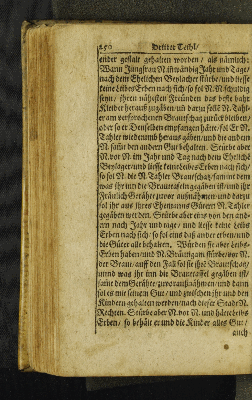 250 Dritter Theil/
ender gestalt gehalten worden / als nämlich:
Wann Jungfrau N. ißwändig Jahr und Tage/
nach dem Ehelichen Beylager stürbe/ und liesse
keine Leibes Erben nach sich/ so sol N. N. schuldig
seyn/ ihren nähesten Freunden das beste
Kleider heraus zu geben/ un darzu solle N. Tahl-
ern versprochenen Brautschatz zurück bleiben/
aber so er Denselben empfangen hätte/ sol Er N.
Tahler wiederumb heraus geben/ und die andern
N. samt den andern Gut behalten. Stürbe aber
N. vor N. im Jahr und Tag nach dem Ehelichē
Beylager/ und liesse keine leibes Erben nach sich/
so sol N. die N. Tahler Brautschatz/ samt deme
was ihr inn die Brautetafen gegäben ist/ und ihr
Fräulich Gerähte zuvor ausnähmen/ und darzu
sol ihr aus ihres Ehemanns Gütern N. Tahler
gegäben werden. Stürbe aber eins von den and-
ern nach Jahr und tage/ und liesse keine leibes
Erben nach sich/ so sol eins das ander erben/ und
die Güter alle behalten. Würden sie aber leibs-
Erben haben/ und N. Bräutigam stürbe/ vor N.
der Braut/ auff den Fall sol sie ihre Brautschatz/
unnd was ihr inn die Brautaffel gegäben ist/
samt dem Gerähte/ zuvor außnähmen/ und dann
sol es mit seinem Gut/ und zwischen ihr und den
Kindern gehalten werden/ nach dieser Stadt N.
Rechten. Stürbe aber N. vor N. und hätte leibs
Erben/ so behält er und die Kinder alles Gut/
auch